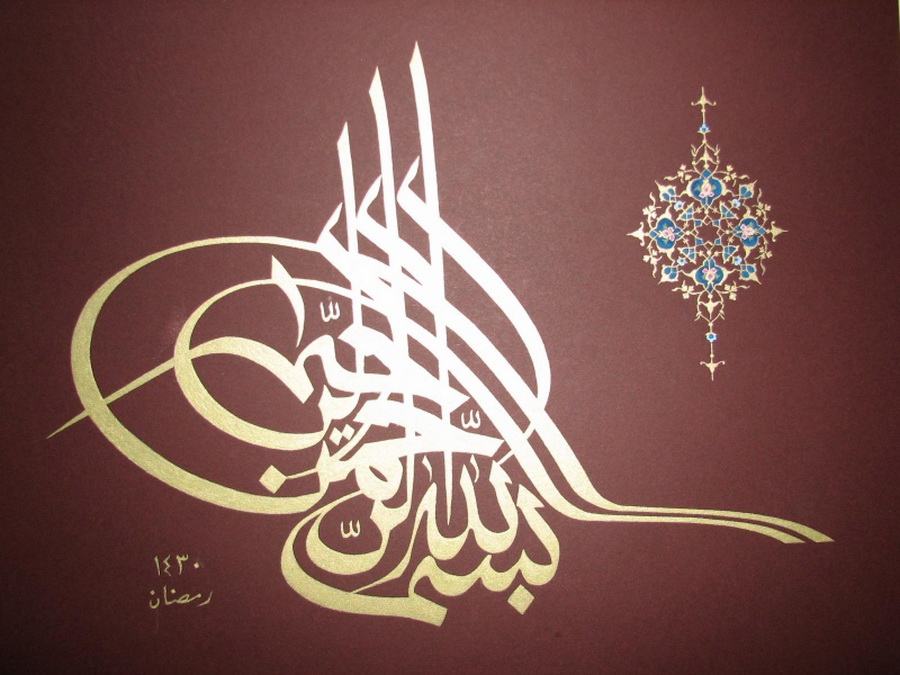 بسم الله الرحمن الرحيم
١٤٣٠
رمضان